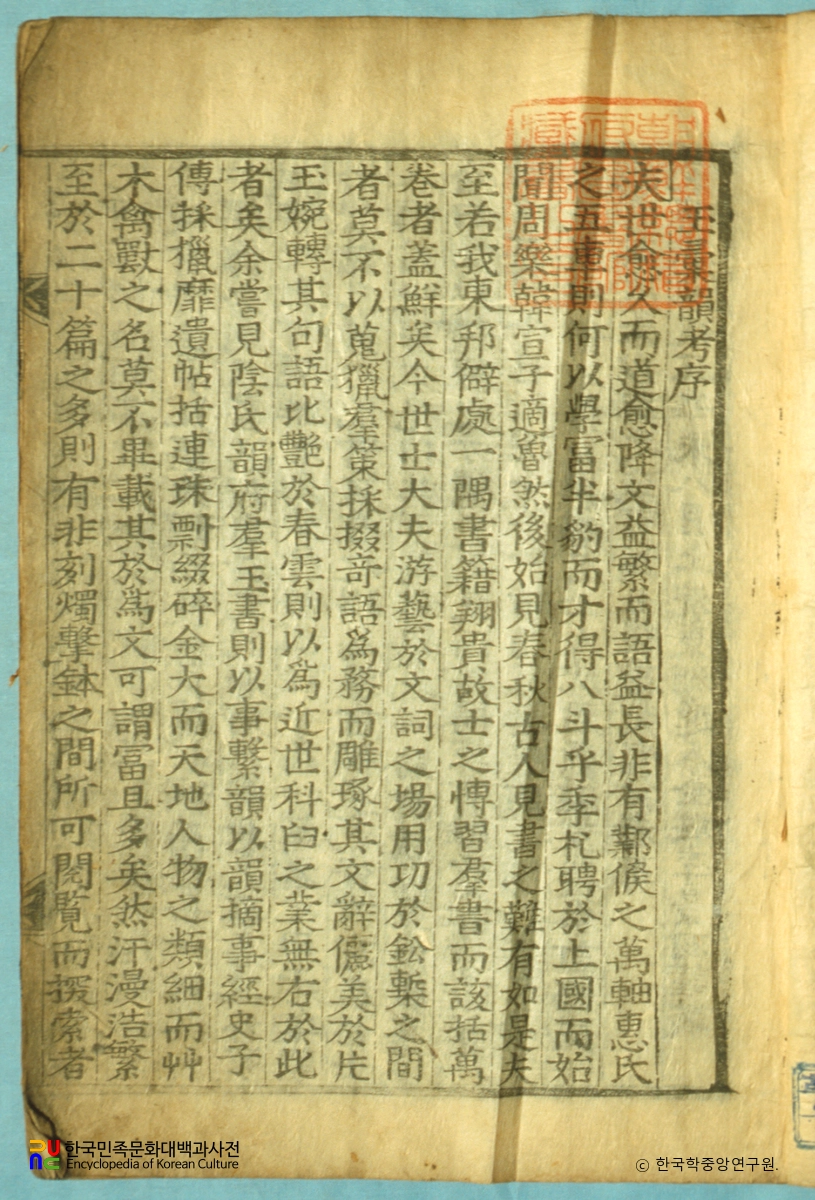 玉彙韻考序
夫世愈久而道愈降文益繁而語益長非有鄴侯之萬軸惠氏
之五車則何以學富半豹而才得八斗乎季札聘於上國而始
聞周樂韓宣子適魯然後始見春秋古人見書之難有如是夫
至若我東邦僻處一隅書籍翔貴故士之愽習羣書而該括萬
卷者蓋鮮矣今世士大夫游藝於文詞之場用功於鈆槧之間
者莫不以蒐獵羣策採掇竒語爲務而雕琢其文辭儷美於片
玉婉轉其句語比艷於春雲則以爲近世科臼之業無右於此
者矣余嘗見陰氏韻府羣玉書則以事繫韻以韻摘事經史子
傳採獵靡遺帖括連珠剽綴碎金大而天地人物之類細而艸
木禽獸之名莫不畢載其於爲文可謂富且多矣然汗漫浩繁
至於二十篇之多則有非刻燭擊鉢之間所可閱覧而探索者
한국민족문화대백과사전
Encyclopedia of Korean Culture
© 한국학중앙연구원.